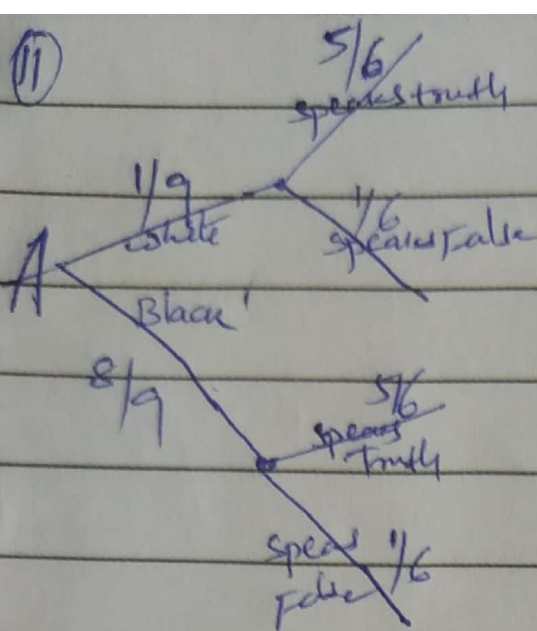 11
5/6
speaks truth
1/9
white
1/6
speaks False
A
Black
8/9
5/6
speaks
Truth
speas 1/6
False